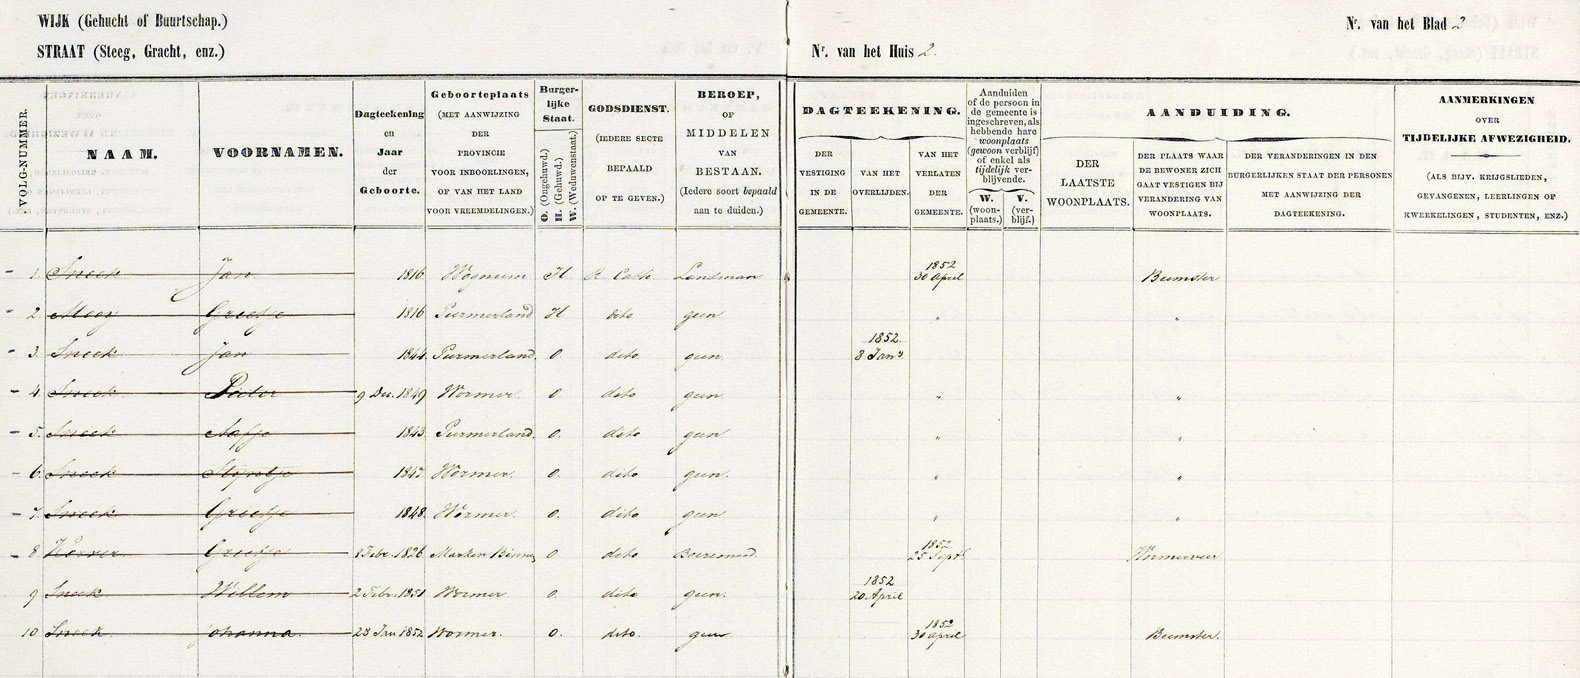 WIJK (Gehucht of Buurtschap.)
STRAAT (Steeg, Gracht, enz.)
Nr. van het Blad 2
Nr. van het Huis 2.
VOLG-NUMMER.
NAAM.
VOORNAMEN.
Dagteekening
en
Jaar
der
Geboorte.
Geboorteplaats
(MET AANWIJZING
DER
PROVINCIE
VOOR INBOORLINGEN,
OF VAN HET LAND
VOOR VREEMDELINGEN.)
Burger-
lijke
Staat.
O. (Ongehuwd.)
H. (Gehuwd.)
W. (Weduwenstaat.)
GODSDIENST.
(IEDERE SECTE
BEPAALD
OP TE GEVEN.)
BEROEP,
OF
MIDDELEN
VAN
BESTAAN.
(Iedere soort bepaald
aan te duiden.)
DAGTEEKENING.
DER
VESTIGING
IN DE
GEMEENTE.
VAN HET
OVERLIJDEN.
VAN HET
VERLATEN
DER
GEMEENTE.
Aanduiden
of de persoon in
de gemeente is
ingeschreven, als
hebbende hare
woonplaats
(gewoon verblijf)
of enkel als
tijdelijk ver-
blijvende.
W.
(woon-
plaats.)
V.
(ver-
blijf.)
AANDUIDING.
DER
LAATSTE
WOONPLAATS.
DER PLAATS WAAR
DE BEWONER ZICH
GAAT VESTIGEN BIJ
VERANDERING VAN
WOONPLAATS.
DER VERANDERINGEN IN DEN
BURGERLIJKEN STAAT DER PERSONEN
MET AANWIJZING DER
DAGTEEKENING.
AANMERKINGEN
OVER
TIJDELIJKE AFWEZIGHEID.
(ALS BIJV. KRIJGSLIEDEN,
GEVANGENEN, LEERLINGEN OF
KWEEKELINGEN, STUDENTEN, ENZ.)
1. Sneek Jan 1816 Wognum H R. Cath Landman 1852 30 April Beemster
2. Mooy Grietje 1816 Purmerland H dito geen " "
3. Sneek Jan 1844 Purmerland. O. dito geen 1852. 8 Jany
4. Sneek Pieter 9 Dec. 1849 Wormer. O. dito geen " "
5. Sneek Aafje 1843 Purmerland. O. dito geen " "
6. Sneek Sijntje 1847 Wormer. O. dito geen. " "
7. Sneek Grietje 1848. Wormer. O. dito geen " "
8. Grietje Febr. 1826 Marken Binnen O. dito Boeremeid. 1852 25 Sept Wormerveer
9 Sneek Willem 2 Febr. 1851 Wormer O. dito geen. 1852 20 April
10. Sneek Johanna 28 Jan 1852 Wormer. O. dito. geen 1852 30 April Beemster.